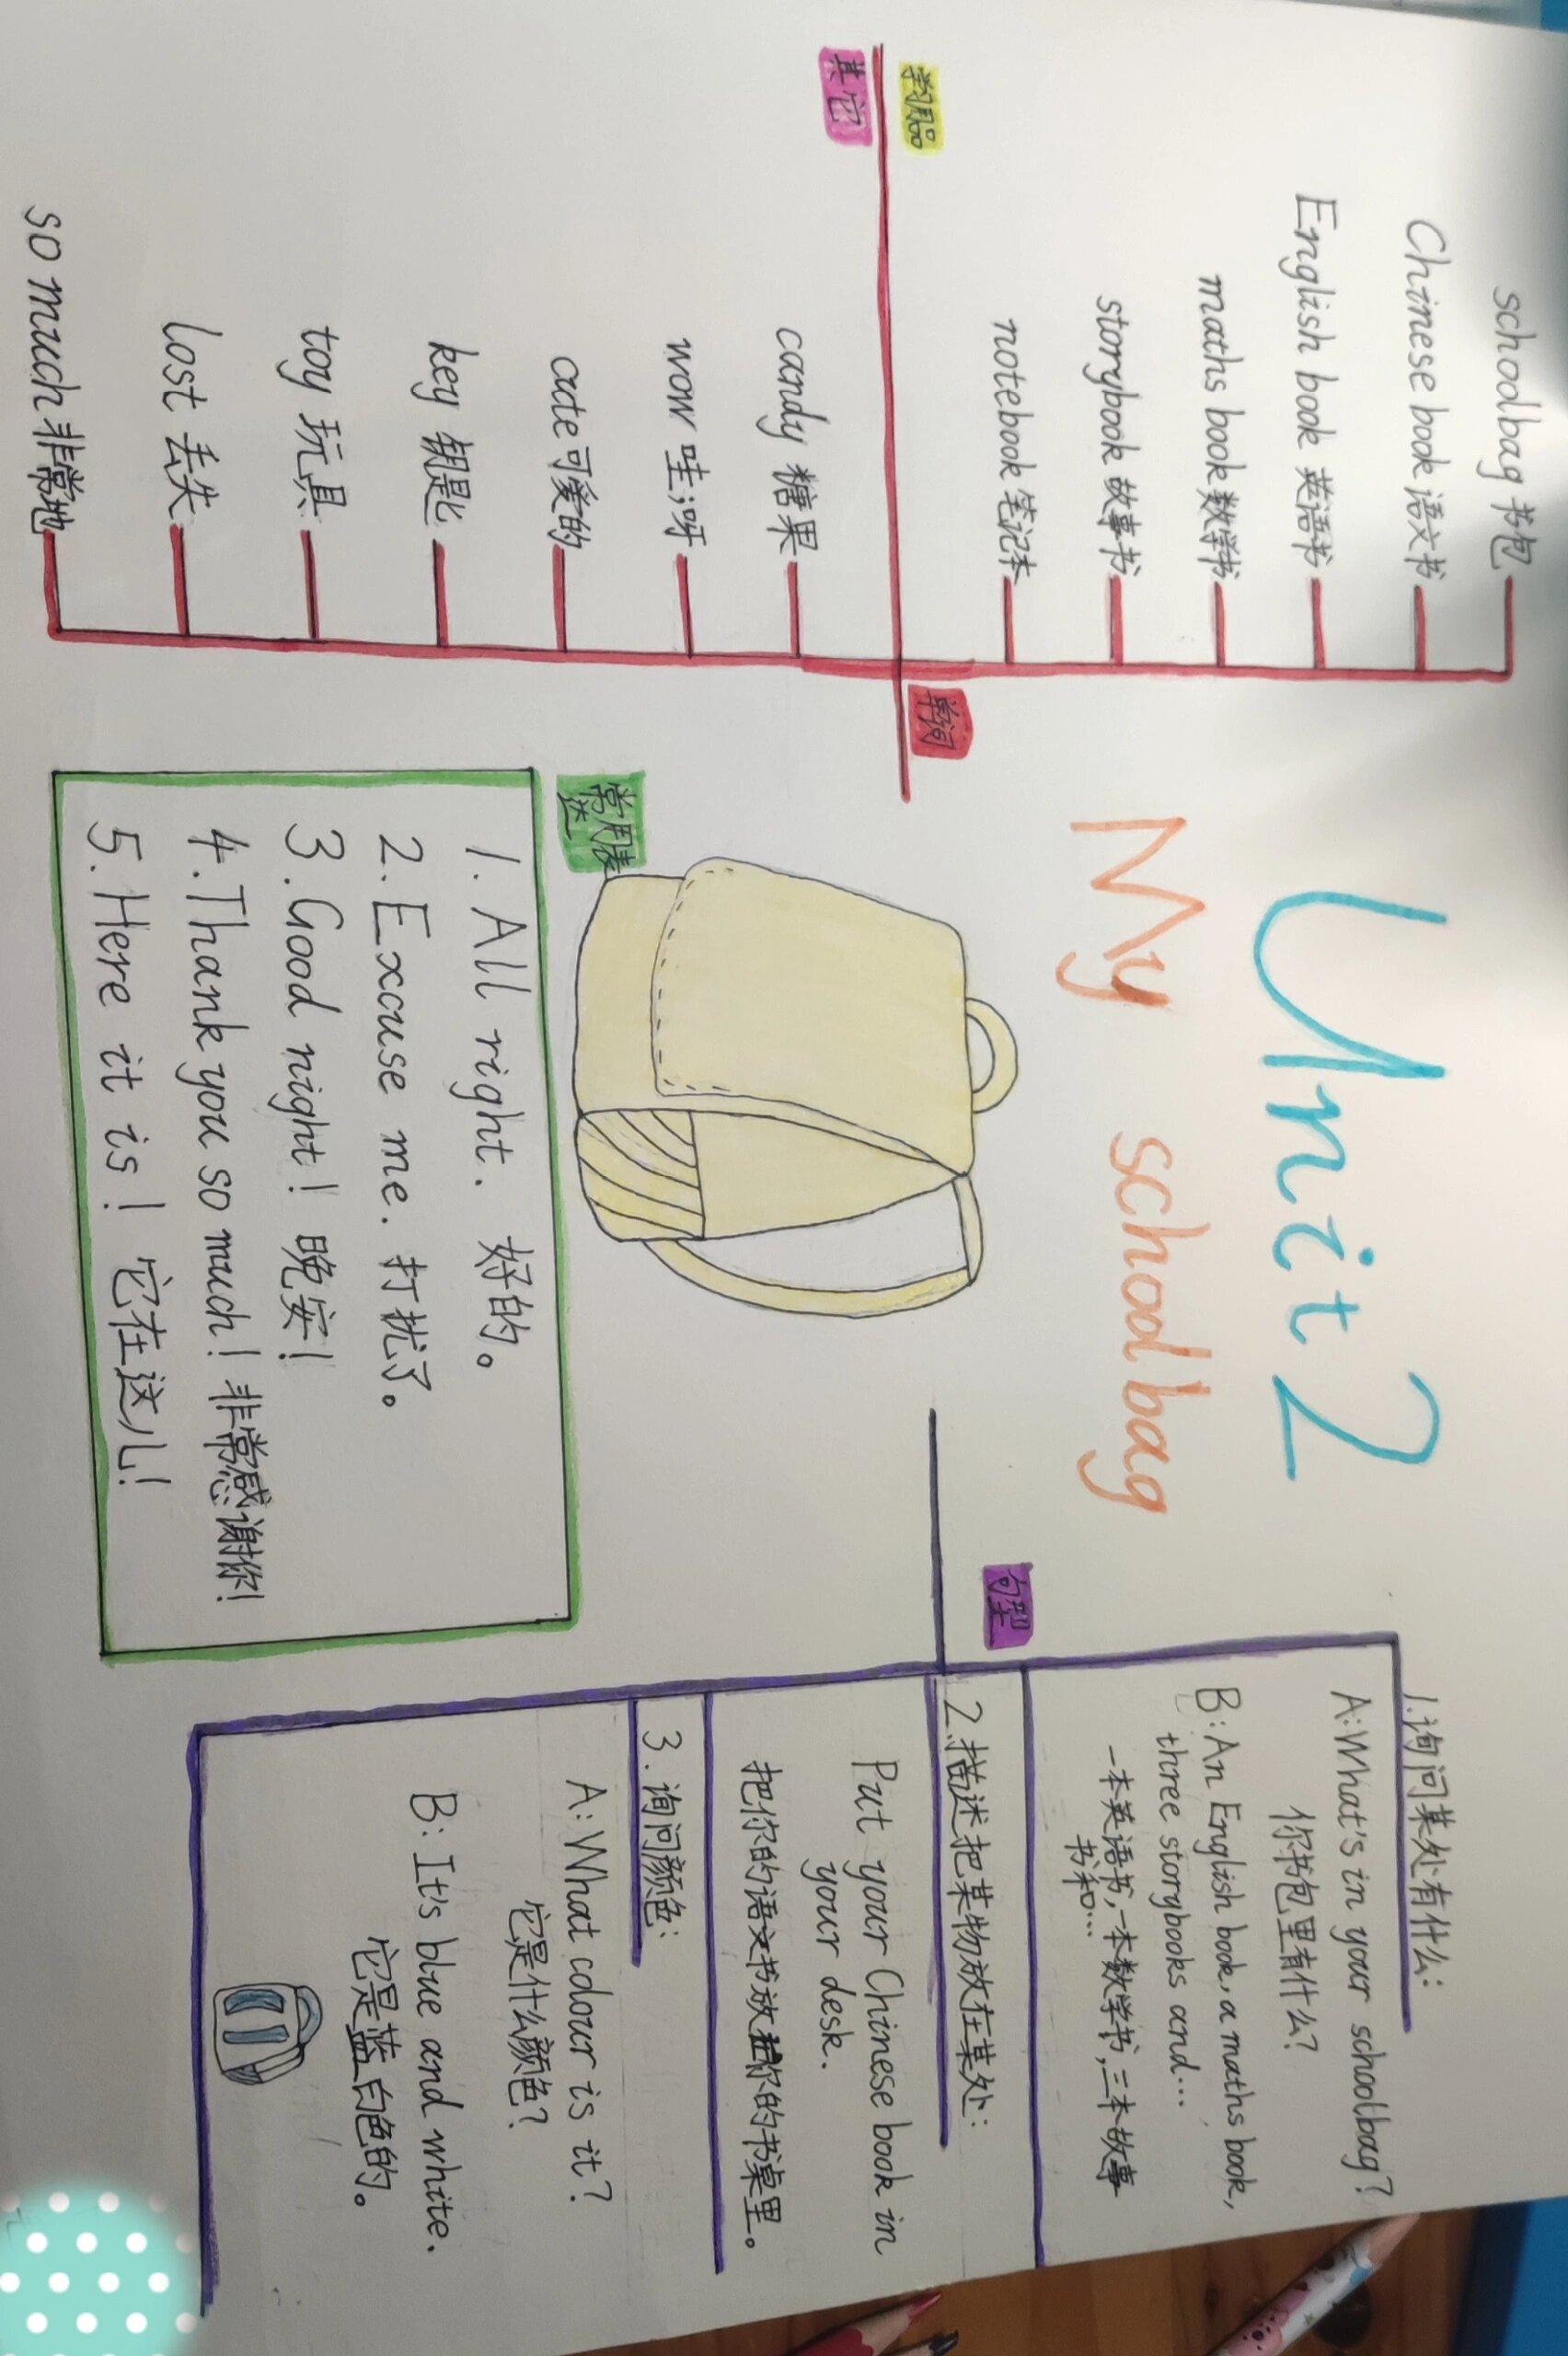 Unit 2
My schoolbag
单词
学习用品
schoolbag 书包
Chinese book 语文书
English book 英语书
maths book 数学书
storybook 故事书
notebook 笔记本
其它
candy 糖果
wow 哇;呀
cute 可爱的
key 钥匙
toy 玩具
lost 丢失
so much 非常地
常用表
达
1. All right. 好的。
2. Excuse me. 打扰了。
3. Good night! 晚安!
4. Thank you so much! 非常感谢你!
5. Here it is! 它在这儿!
句型
1.询问某处有什么:
A: What's in your schoolbag?
你书包里有什么?
B: An English book, a maths book,
three storybooks and...
一本英语书,一本数学书,三本故事
书和...
2.描述把某物放在某处:
Put your Chinese book in
your desk.
把你的语文书放在你的书桌里。
3.询问颜色:
A: What colour is it?
它是什么颜色?
B: It's blue and white.
它是蓝白色的。